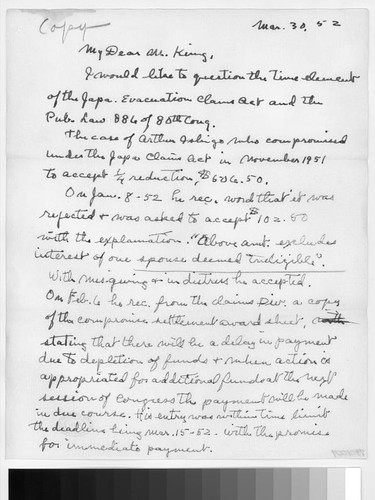 Copy
Mar. 30, 52
My Dear Mr. King,
I would like to question the time element
of the Japa. Evacuation Claims Act and the
Pub. Law 886 of 80th Cong.
The case of Arthur Ishigo who compromised
under the Japa Claims Act in November 1951
to accept 1/4 reduction, $606.50.
On Jan. 8-52 he rec. word that it was
rejected & was asked to accept $102.50
with the explanation. "Above amt. excludes
interest of one spouse deemed ineligible".
With misgiving & in distress he accepted.
On Feb. 6 he rec. from the claims Div. a copy
of the compromise settlement award sheet,
stating that there will be a delay in payment
due to depletion of funds & when action is
appropriated for additional funds at the next
session of Congress the payment will be made
in due course. His entry was within time limit
the deadline being Mar. 15-52. with the promise
for immediate payment.